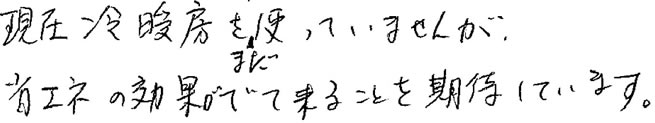 現在冷暖房をまだ使っていませんが、
省エネの効果がでて来ることを期待しています。